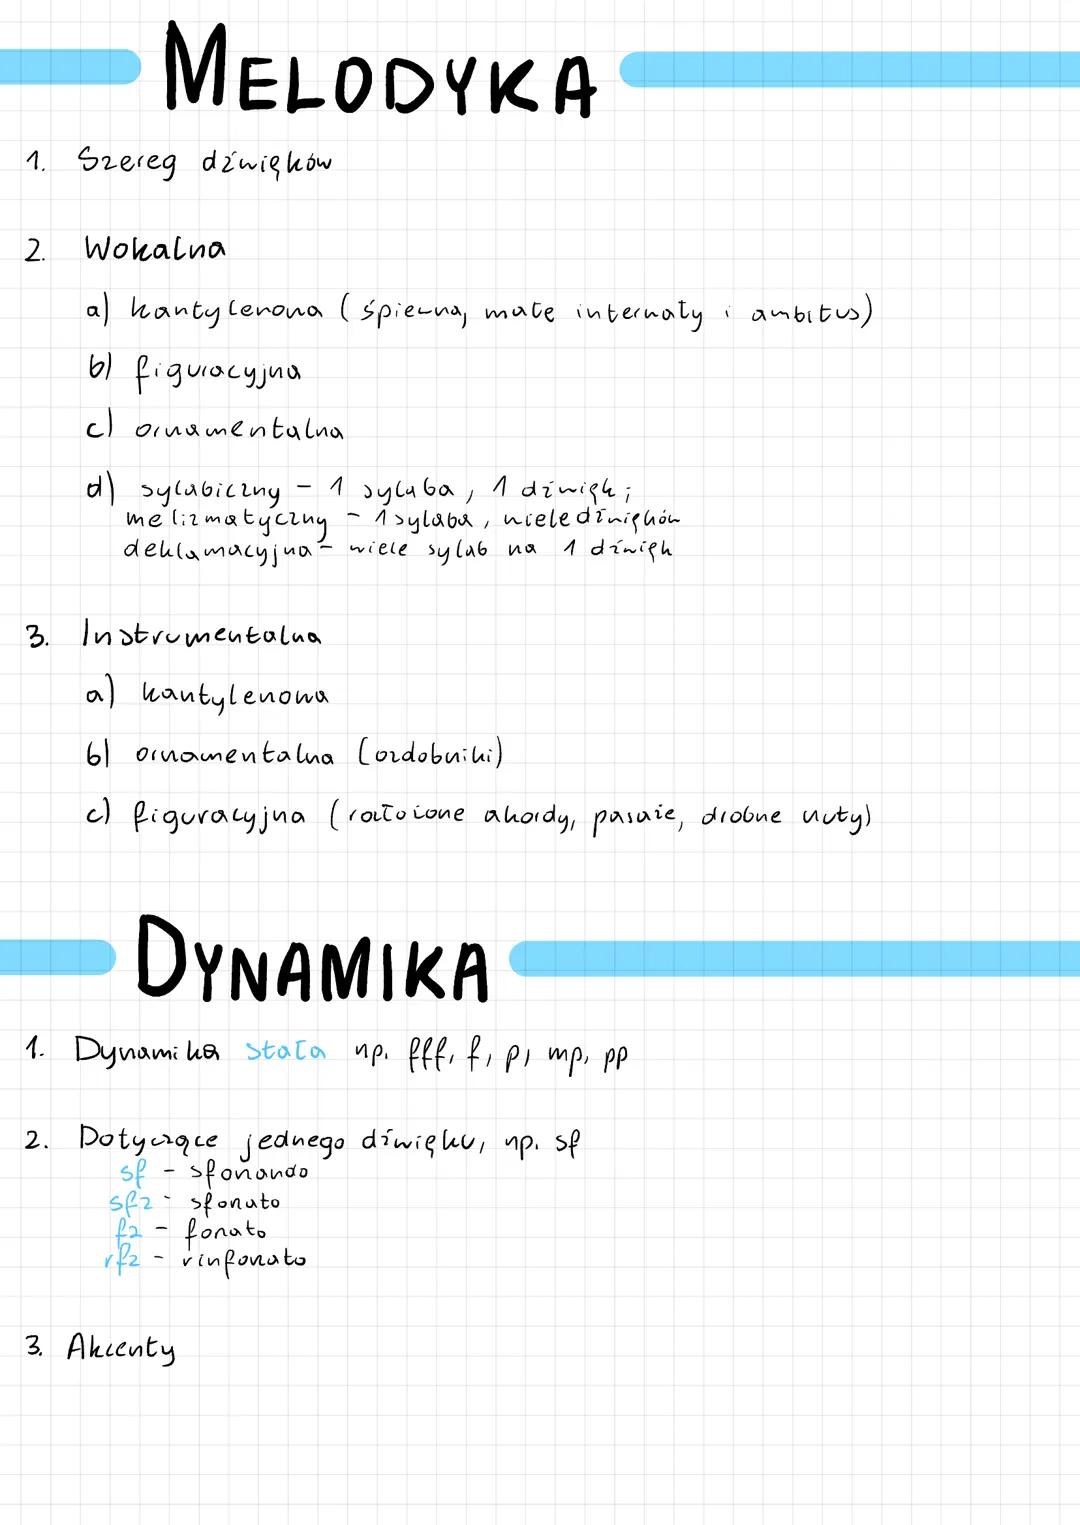 MELODYKA
1. Szereg dźwięków
2. Wokalna
a) kantylenowa (śpiewna, małe interwały i ambitus)
b) figuracyjna
c) ornamentalna
d) sylabiczny - 1 sylaba, 1 dźwięk;
melizmatyczny - 1 sylaba, wiele dźwięków
deklamacyjna - wiele sylab na 1 dźwięk
3. Instrumentalna
a) kantylenowa
b) ornamentalna (ozdobniki)
c) figuracyjna (rozłożone akordy, pasaże, drobne nuty)
DYNAMIKA
1. Dynamika stała np. fff, f, p, mp, pp
2. Dotyczące jednego dźwięku, np. sf
sf - sforzando
sfz - sforzato
fz - forzato
rfz - rinforzato
3. Akcenty